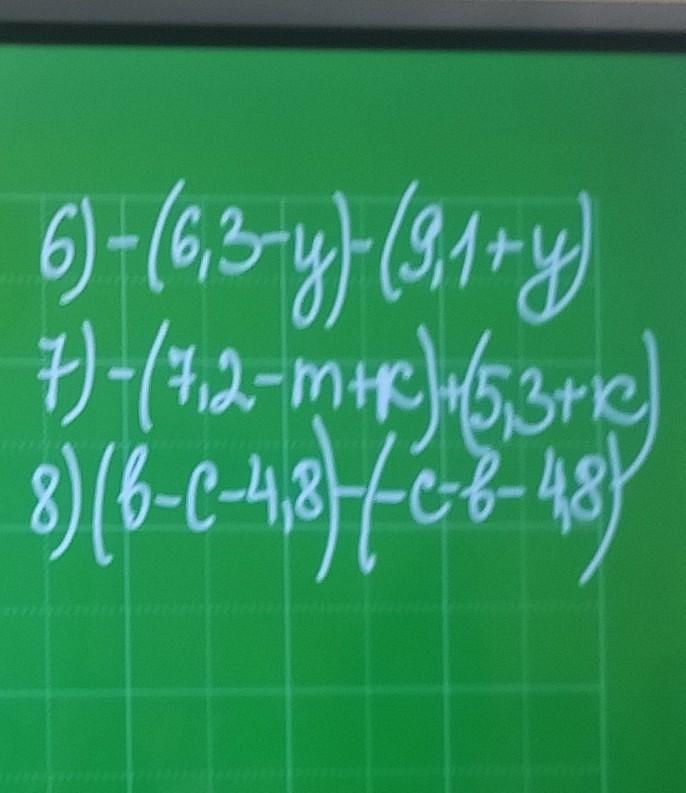 6) -(6,3-y)-(9,1+y)
7) -(7,2-m+k)+(5,3+k)
8) (b-c-4,8)-(-c-b-4,8)